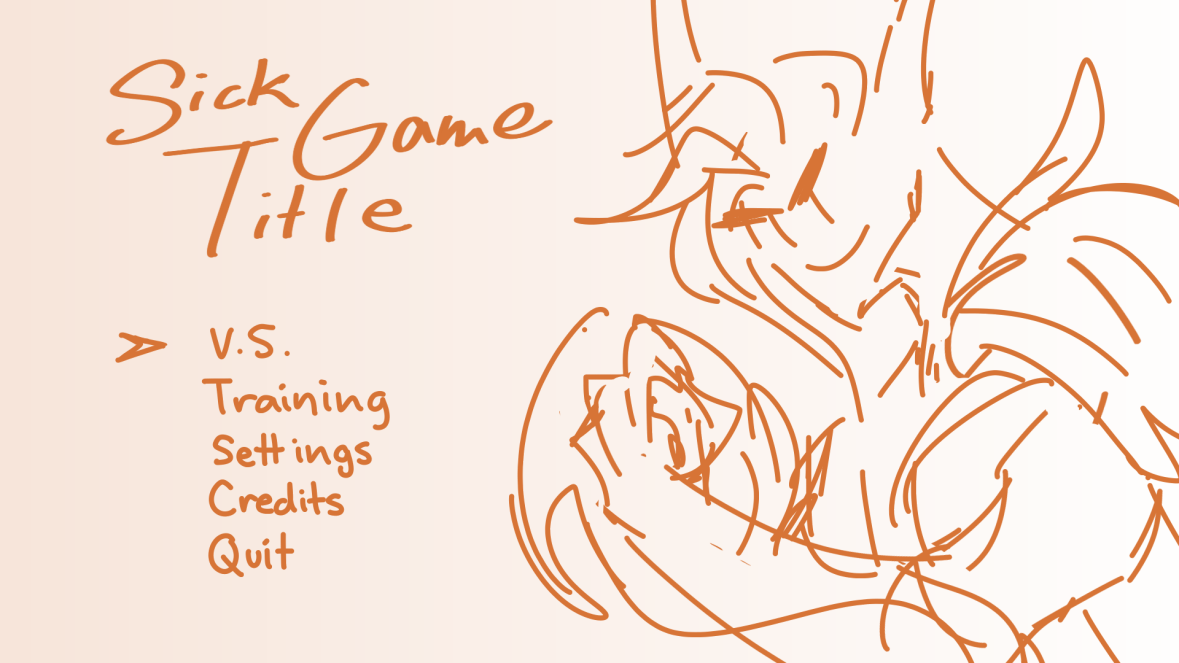 Sick Game
Title
V.S.
Training
Settings
Credits
Quit